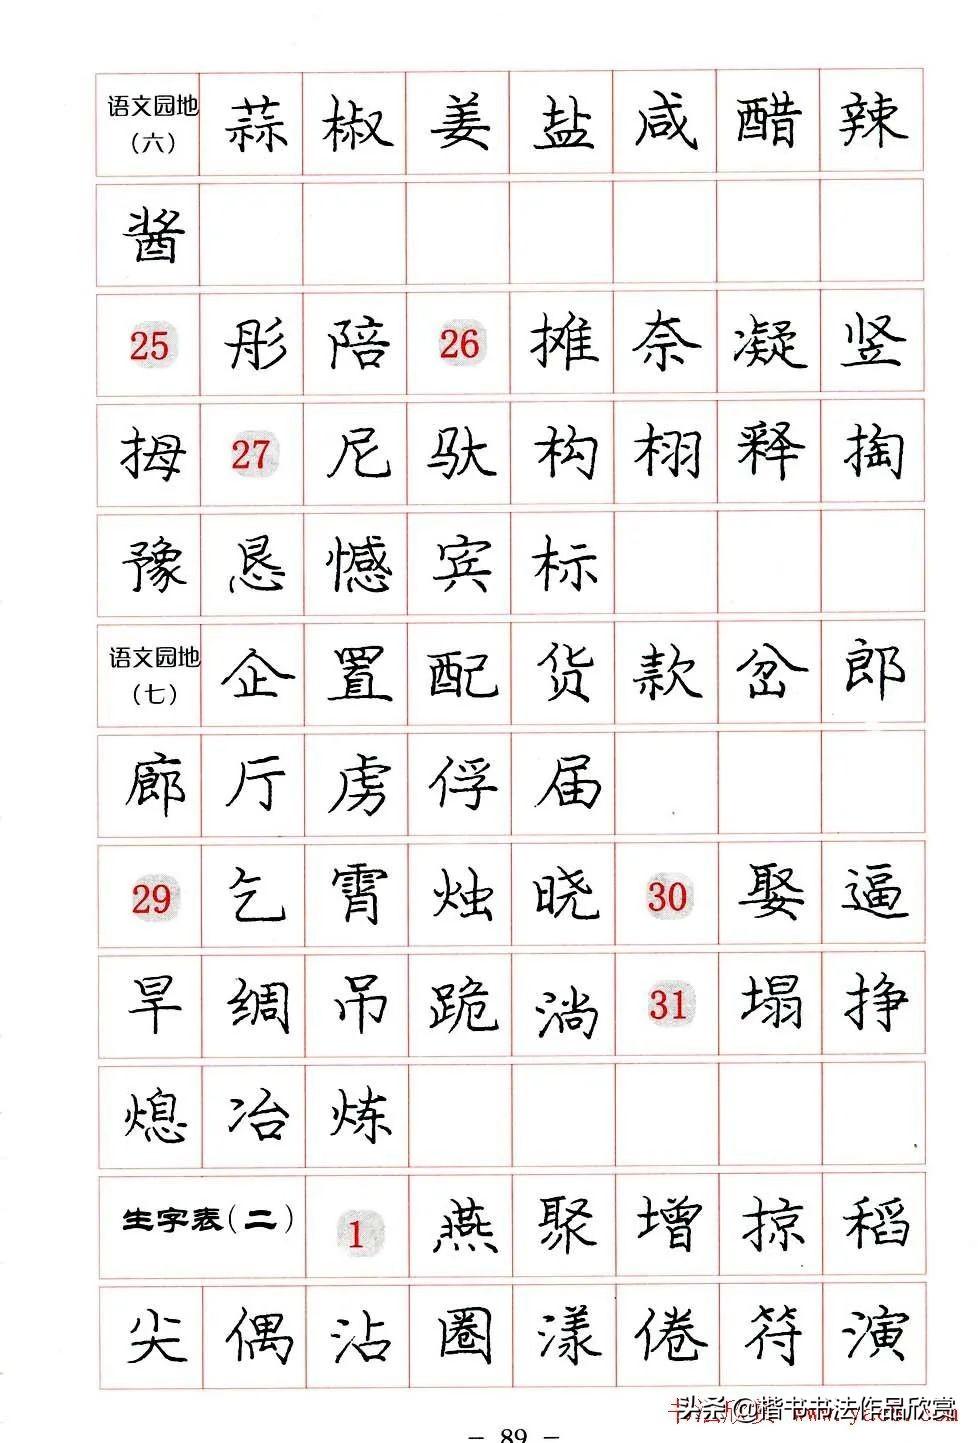 语文园地 蒜 椒 姜 盐 咸 醋 辣
（六）
酱
25 彤 陪 26 摊 奈 凝 竖
拇 27 尼 驮 构 栩 释 掏
豫 恳 憾 宾 标
语文园地 企 置 配 货 款 岔 郎
（七）
廊 厅 虏 俘 届
29 乞 霄 烛 晓 30 娶 逼
旱 绸 吊 跪 淌 31 塌 挣
熄 冶 炼
生字表（二） 1 燕 聚 增 掠 稻
尖 偶 沾 圈 漾 倦 符 演
头条@楷书书法作品欣赏
- 89 -